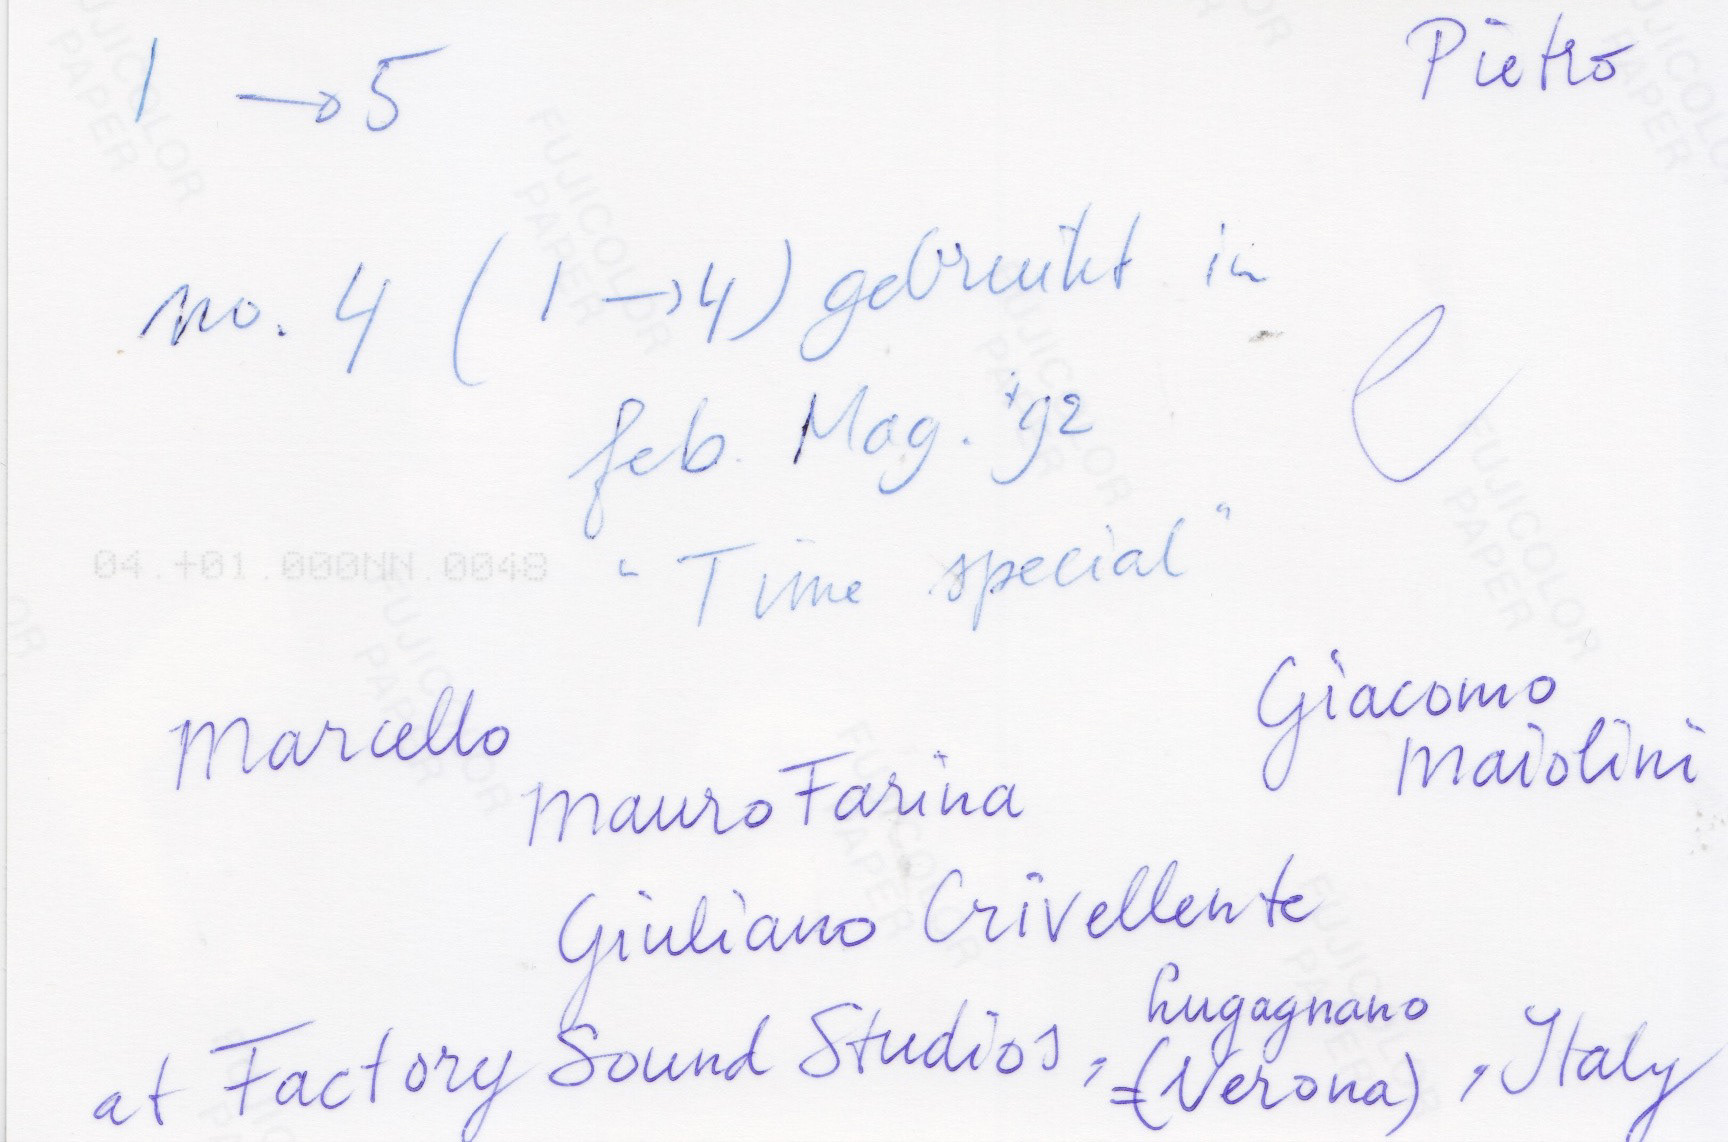 1 → 5
Pietro
no. 4 (1 → 4) gebruikt in
feb. Mag. '92
"Time special"
04.+01.000NN.0048
Giacomo
Maiolini
Marcello
Mauro Farina
Giuliano Crivellente
Lugagnano
at Factory Sound Studios, (Verona), Italy
FUJICOLOR
PAPER